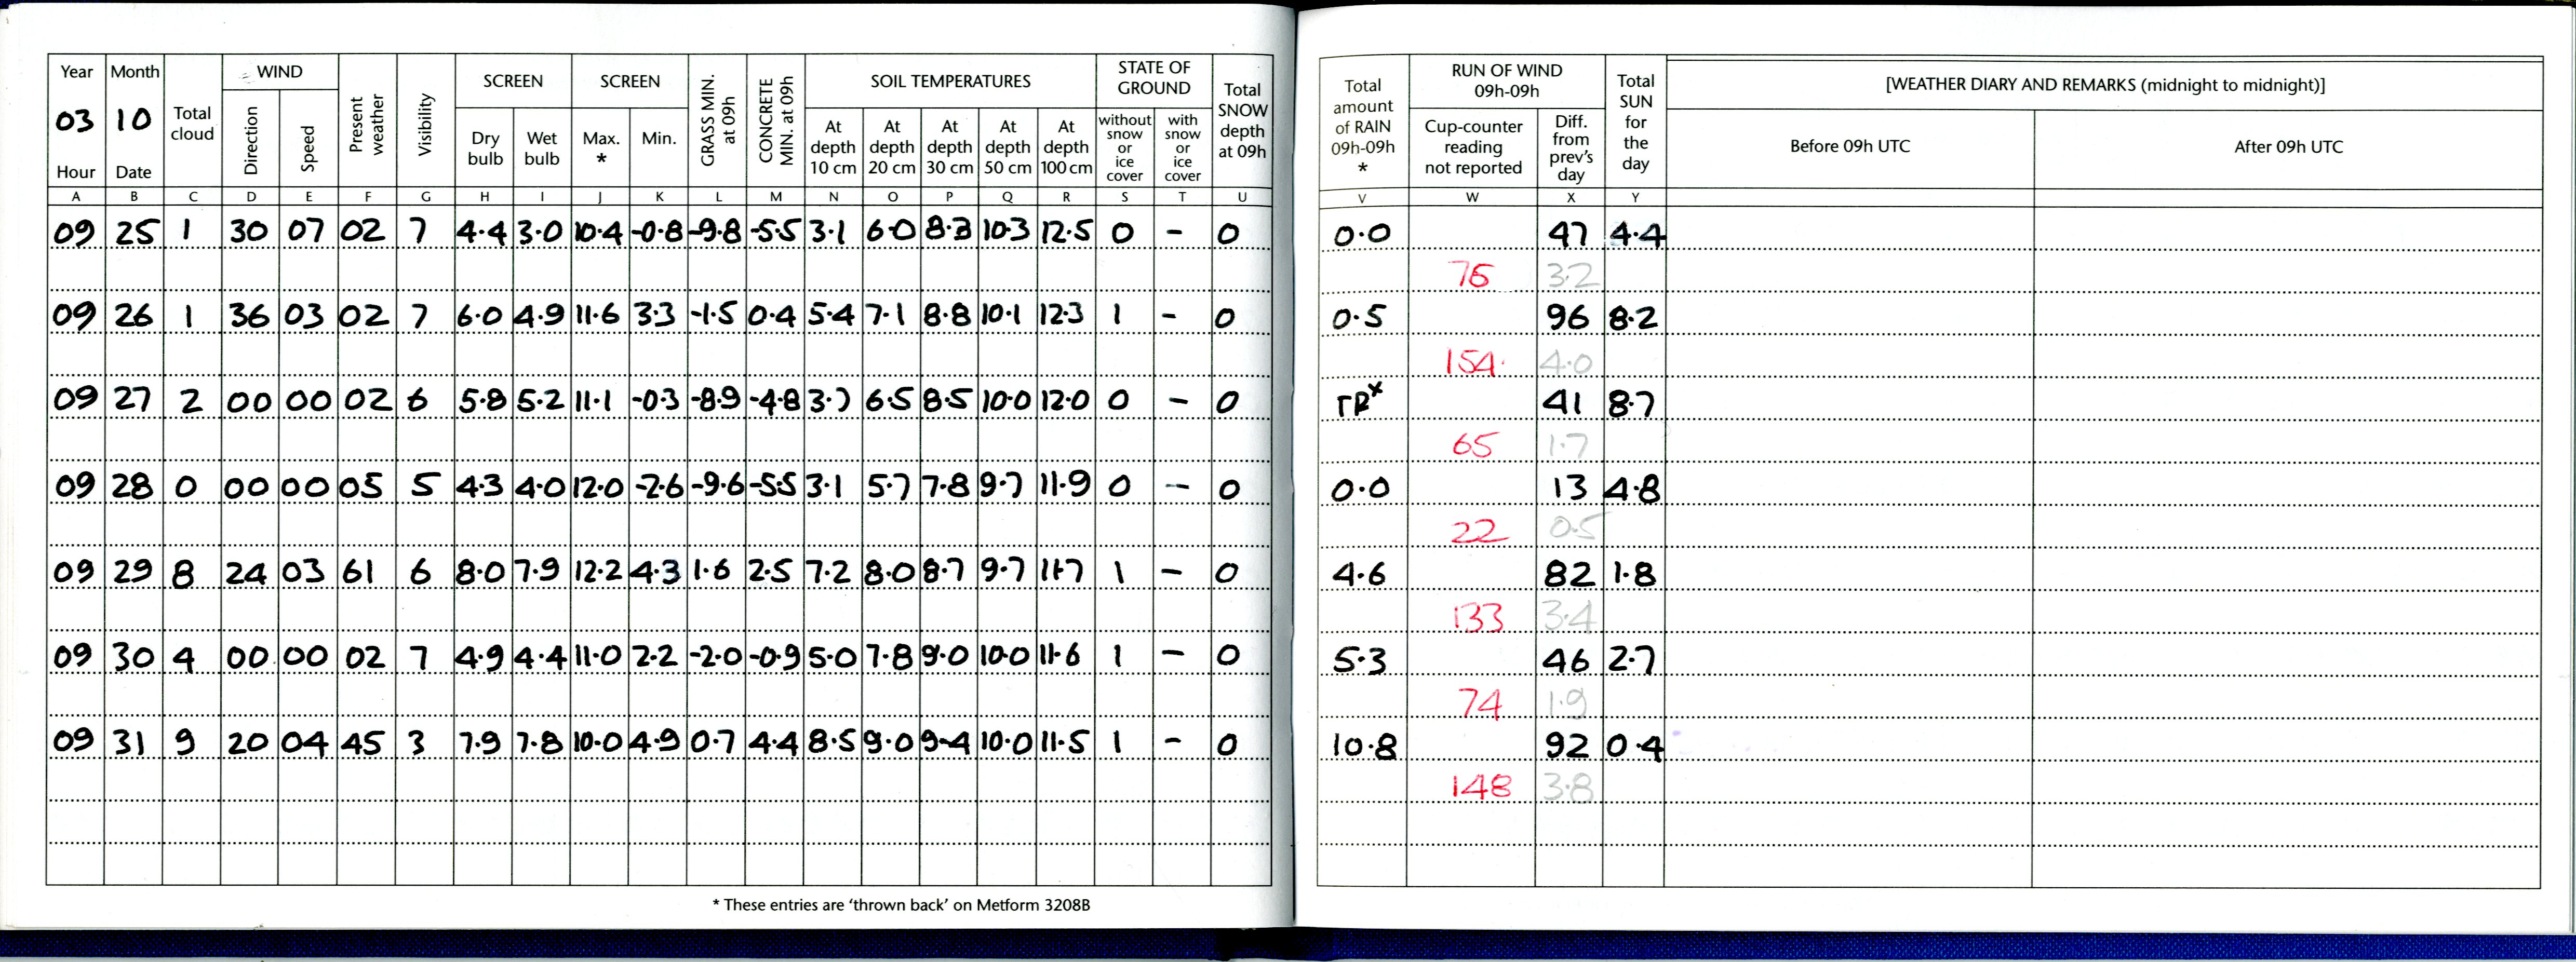 Year Month Total cloud WIND Present weather Visibility SCREEN SCREEN GRASS MIN. at 09h CONCRETE MIN. at 09h SOIL TEMPERATURES STATE OF GROUND Total SNOW depth at 09h
03 10 Direction Speed Dry bulb Wet bulb Max. * Min. At depth 10 cm At depth 20 cm At depth 30 cm At depth 50 cm At depth 100 cm without snow or ice cover with snow or ice cover
Hour Date
A B C D E F G H I J K L M N O P Q R S T U
09 25 1 30 07 02 7 4.4 3.0 10.4 -0.8 -9.8 -5.5 3.1 6.0 8.3 10.3 12.5 0 - 0
09 26 1 36 03 02 7 6.0 4.9 11.6 3.3 -1.5 0.4 5.4 7.1 8.8 10.1 12.3 1 - 0
09 27 2 00 00 02 6 5.8 5.2 11.1 -0.3 -8.9 -4.8 3.7 6.5 8.5 10.0 12.0 0 - 0
09 28 0 00 00 05 5 4.3 4.0 12.0 -2.6 -9.6 -5.5 3.1 5.7 7.8 9.7 11.9 0 - 0
09 29 8 24 03 61 6 8.0 7.9 12.2 4.3 1.6 2.5 7.2 8.0 8.7 9.7 11.7 1 - 0
09 30 4 00 00 02 7 4.9 4.4 11.0 2.2 -2.0 -0.9 5.0 7.8 9.0 10.0 11.6 1 - 0
09 31 9 20 04 45 3 7.9 7.8 10.0 4.9 0.7 4.4 8.5 9.0 9.4 10.0 11.5 1 - 0
* These entries are ‘thrown back’ on Metform 3208B
Total amount of RAIN 09h-09h * RUN OF WIND 09h-09h Total SUN for the day [WEATHER DIARY AND REMARKS (midnight to midnight)]
Cup-counter reading not reported Diff. from prev's day Before 09h UTC After 09h UTC
V W X Y
0.0 47 4.4
76 3.2
0.5 96 8.2
154. 4.0
TRx 41 8.7
65 1.7
0.0 13 4.8
22 0.5
4.6 82 1.8
133 3.4
5.3 46 2.7
74 1.9
10.8 92 0.4
148 3.8